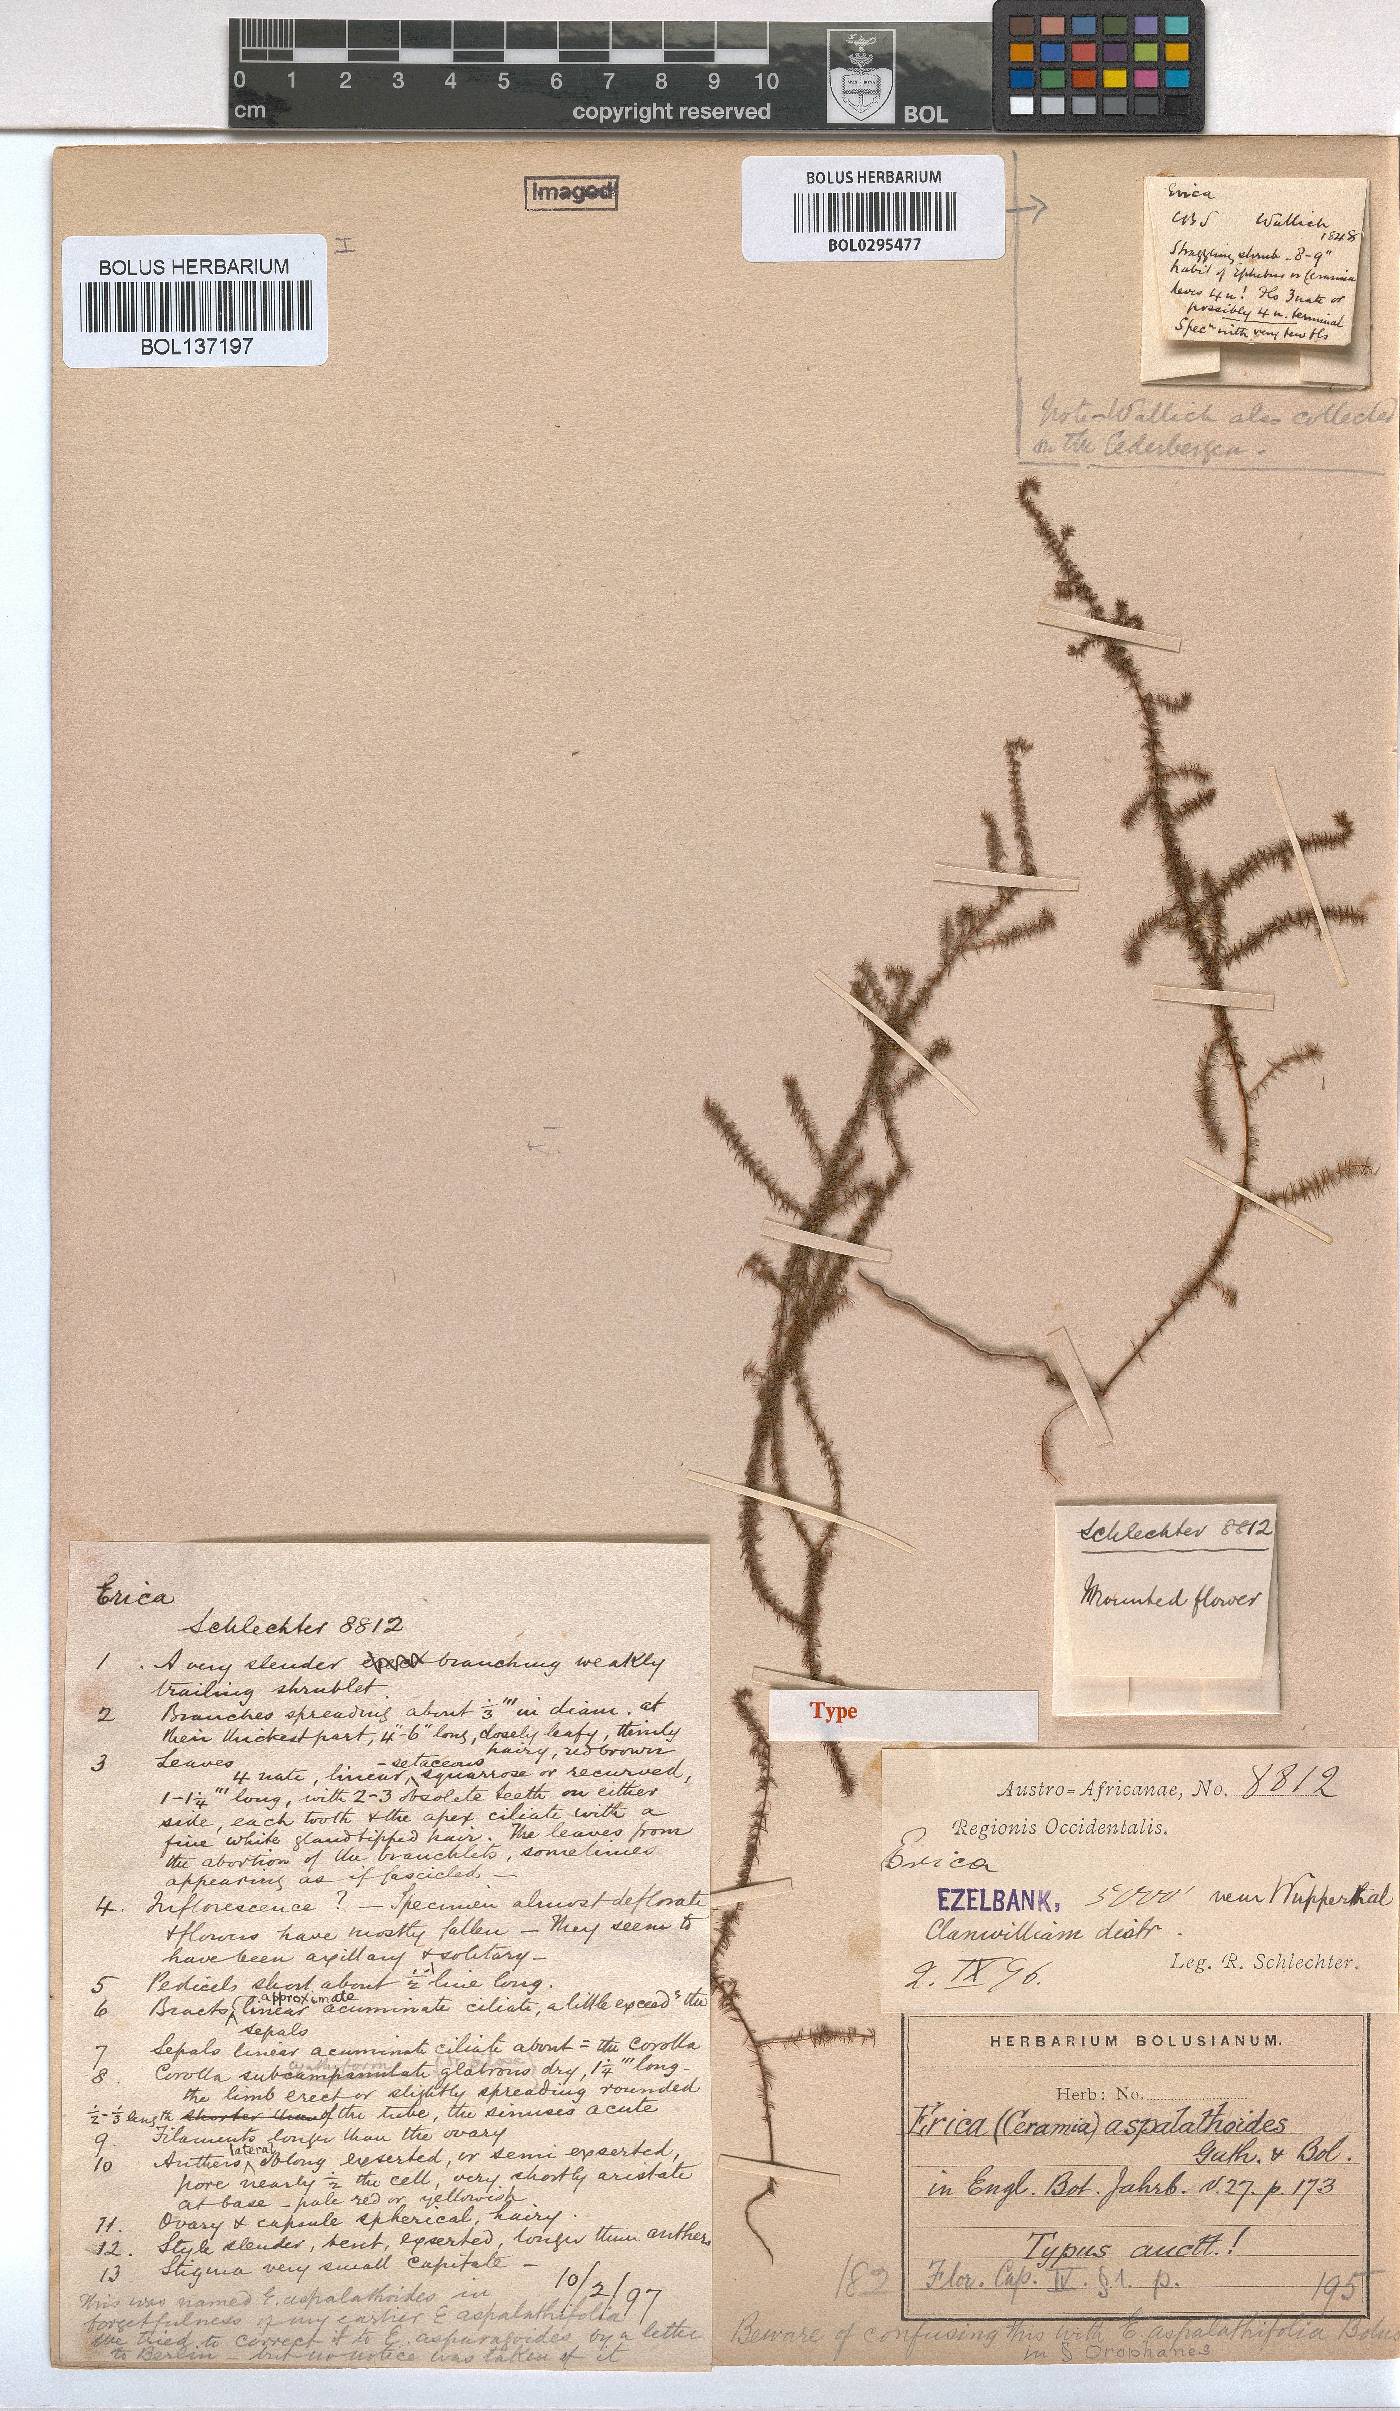 0 1 2 3 4 5 6 7 8 9 10
cm
copyright reserved
BOL
Imaged
BOLUS HERBARIUM
BOL0295477
BOLUS HERBARIUM
BOL137197
I
Erica
Wallich
1848
Straggling shrub - 8-9"
habit of Ephebus or Ceramia
leves 4 n! Fls 3 nate or
possibly 4 n. terminal
Specn with very few fls
Note - Wallich also collected
on the Cederbergen -
Schlechter 8812
Mounted flower
Type
Erica
Schlechter 8812
1 . A very slender erect branching weakly
trailing shrublet
2 Branches spreading about ⅓''' in diam. at
their thickest part, 4"-6" long, closely leafy, thinly
hairy, red brown
3 Leaves
4 nate, linear-setaceous squarrose or recurved,
1-1¼''' long, with 2-3 obsolete teeth on either
side, each tooth & the apex ciliate with a
fine white gland tipped hair. The leaves from
the abortion of the branchlets, sometimes
appearing as if fascicled. -
4. Inflorescence ? - Specimen almost deflorate
& flowers have mostly fallen - They seem to
have been axillary & solitary -
5 Pedicels short about ½ line long.
6 Bracts approximate linear acuminate ciliate, a little exceeds the
sepals
7 Sepals linear acuminate ciliate about = the corolla
8. Corolla subcampanulate glabrous dry, 1¼''' long -
the limb erect or slightly spreading rounded
½-⅓ length shorter than of the tube, the sinuses acute
9. Filaments longer than the ovary
10 Anthers lateral oblong exserted, or semi exserted,
pore nearly ½ the cell, very shortly aristate
at base - pale red or yellowish
11. Ovary & capsule spherical, hairy.
12. Style slender, bent, exserted, longer than anthers
13 Stigma very small capitate -
10/2/97
This was named E. aspalathoides in
forgetfulness of my earlier E aspalathifolia
We tried to correct it to E. asparagoides by a letter
to Berlin - but no notice was taken of it
Austro=Africanae, No. 8812
Regionis Occidentalis.
Erica
EZELBANK, near Wupperthal
Clanwilliam distr.
2. IX 96.
Leg. R. Schlechter.
HERBARIUM BOLUSIANUM.
Herb: No.
Erica (Ceramia) aspalathoides
Guth. & Bol.
in Engl. Bot. Jahrb. v. 27. p. 173
Typus auctt.!
182 Flor. Cap. IV. § 1. p. 195
Beware of confusing this with E. aspalathifolia Bolus
in § Orophanes